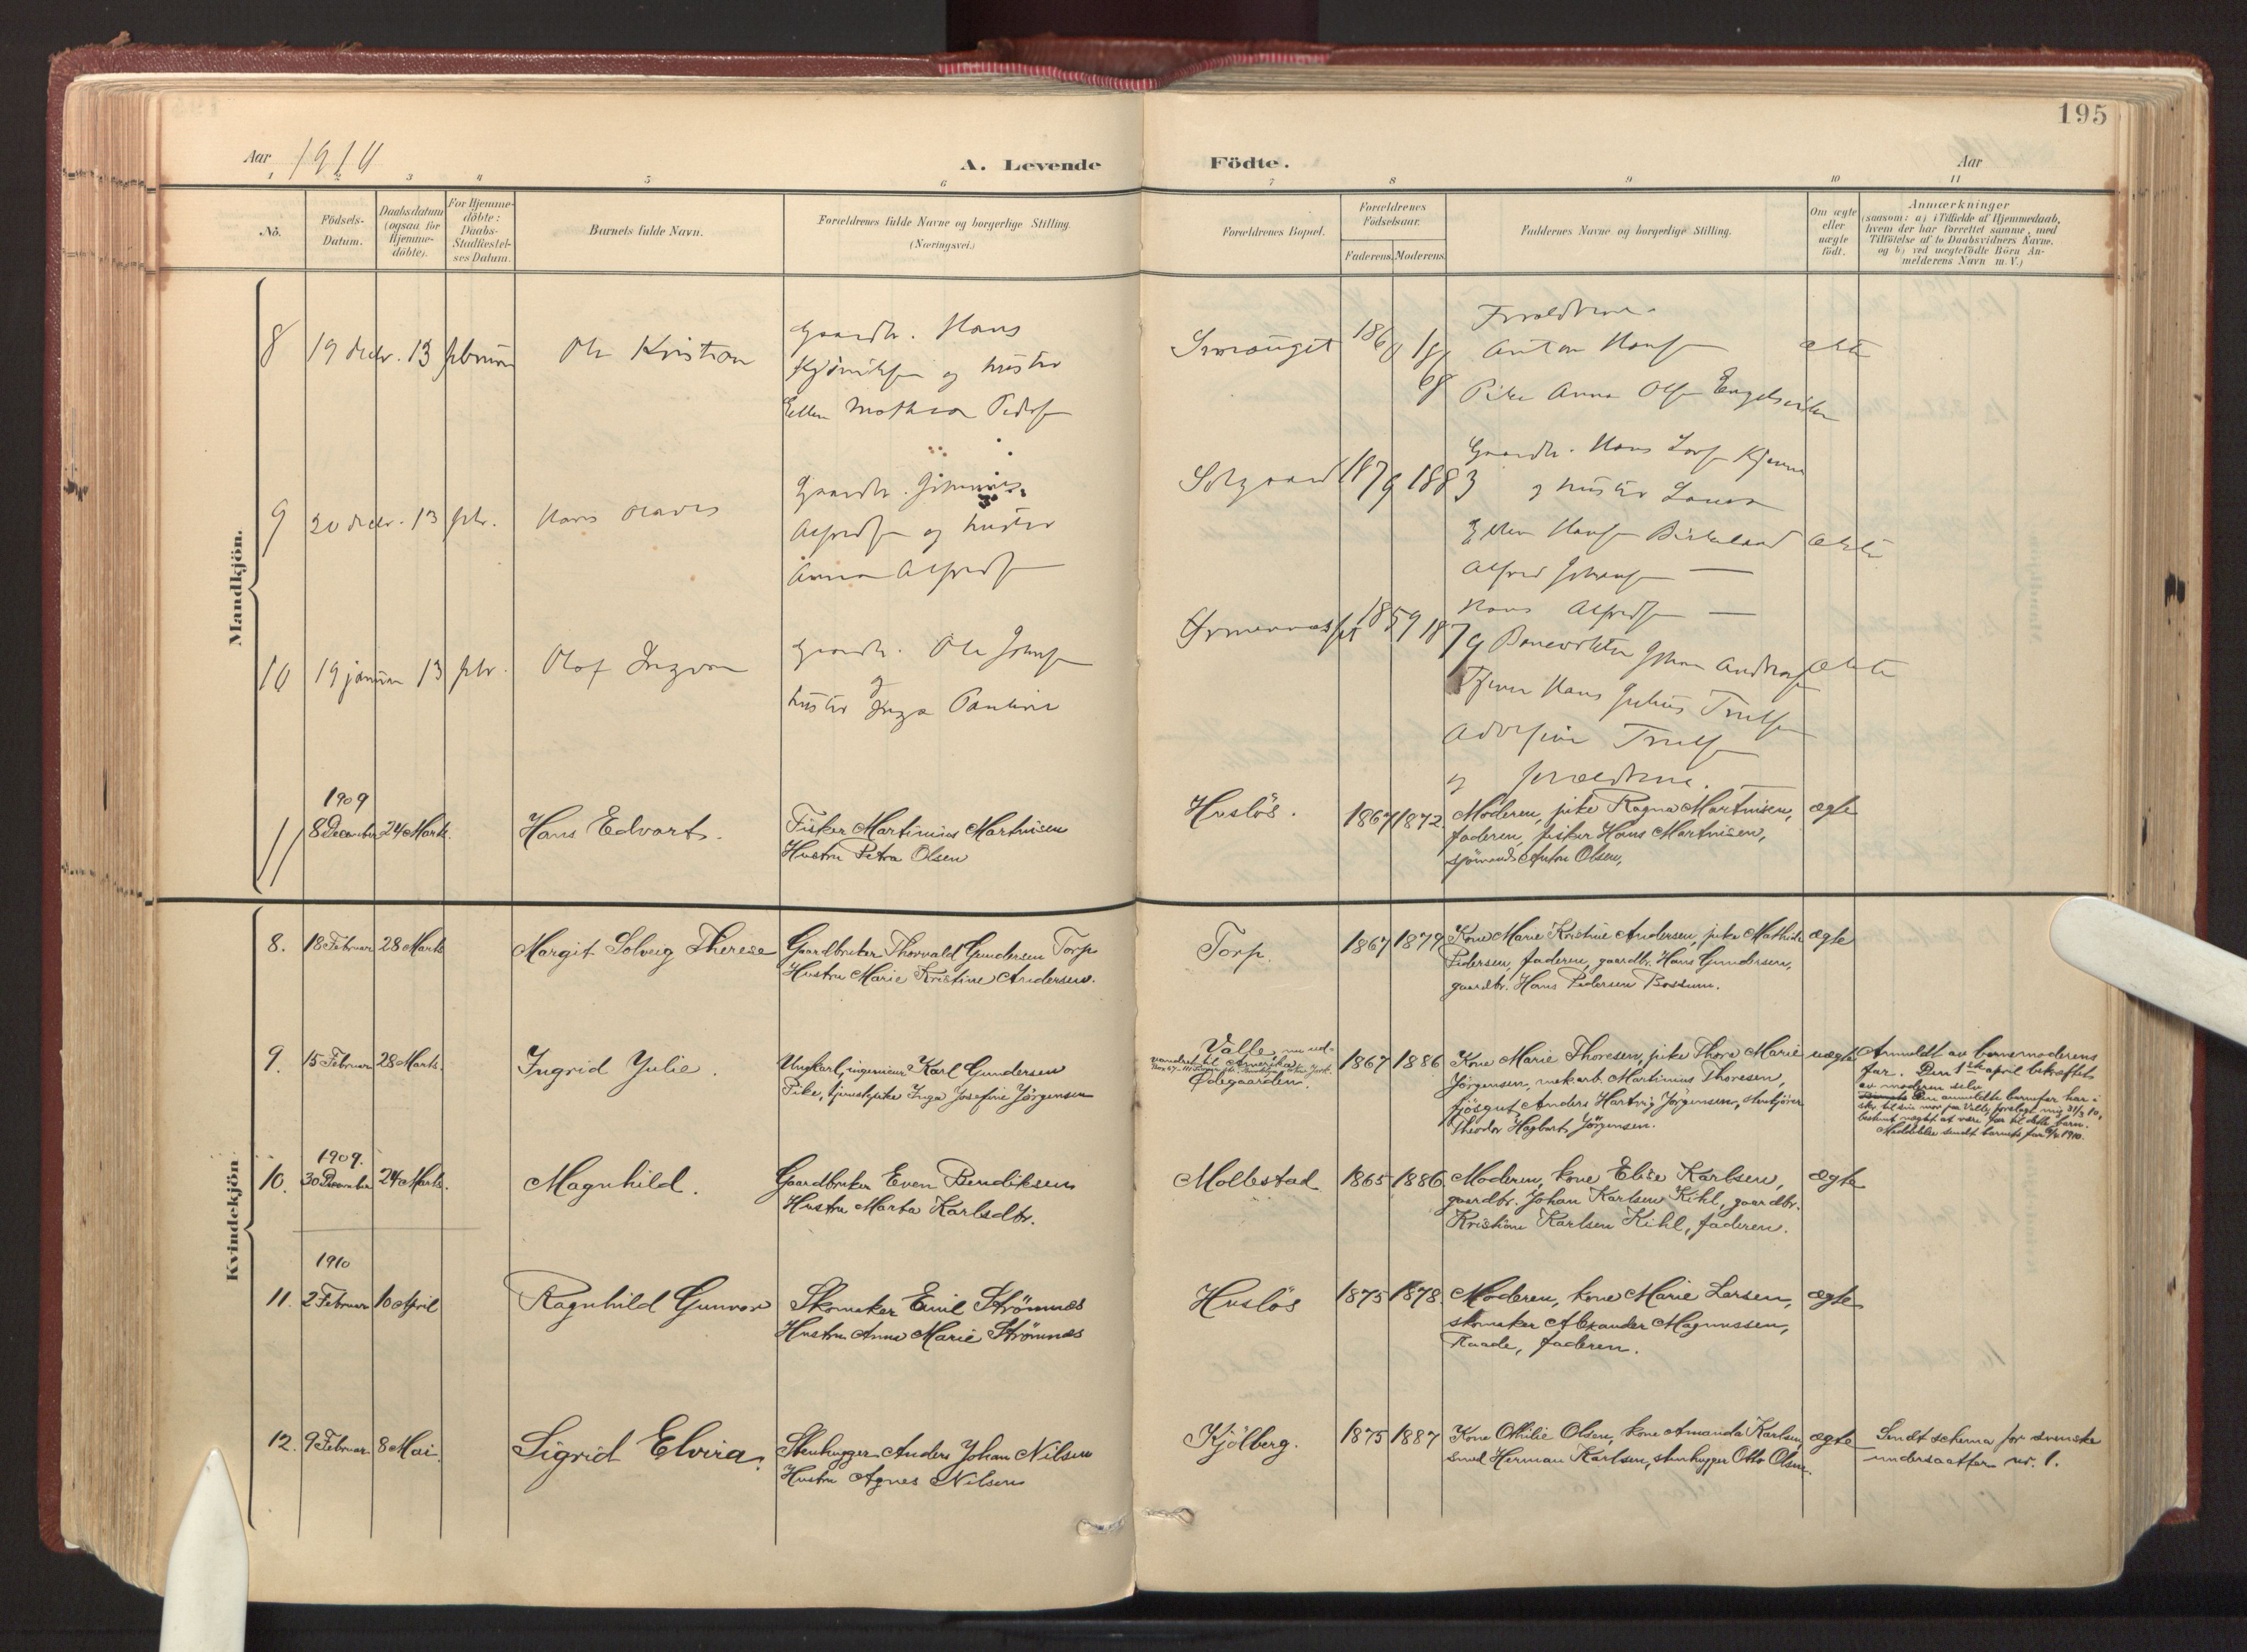 195
Aar 1910
A. Levende Födte.
Aar
1 2 3 4 5 6 7 8 9 10 11
No.
Födsels-
Datum.
Daabsdatum
(ogsaa for
Hjemme-
döbte).
For Hjemme-
döbte:
Daabs-
Stadfæstel-
ses Datum.
Barnets fulde Navn.
Forældrenes fulde Navne og borgerlige Stilling
(Næringsvei.)
Forældrenes Bopæl.
Forældrenes
Födselsaar.
Faderens. Moderens.
Faddernes Navne og borgerlige Stilling.
Om ægte
eller
uægte
födt.
Anmærkninger
(saasom: a) i Tilfælde af Hjemmedaab,
hvem der har forrettet samme, med
Tilföielse af to Daabsvidners Navne.
og b) ved uægtefödte Börn An-
melderens Navn m. V.)
Mandkjön.
8 19 decbr. 13 februar
Ole Kristian
Gaardbr. Hans
og hustru
Ellen Mathea
186
18
68
Forældrene
Anton Hansen
Pike Anna Olsen Engelsviken
ekte
9 20 decbr. 13 febr.
Hans Olaves
Gaardbr.
Alfredsen og hustru
Anna Alfredsen
Solgaard
1879 1883
Gaardbr. Hans
og hustru
Ellen Hansen
Alfred Johansen —
Hans Alfredsen —
ekte
10 19 januar 13 febr.
Olaf Ingvar
Gaardbr. Ole Johansen
og
hustru Inga Pauline
1859 1879
Johan Andreasen
Hans Julius Trulsen
Adolfine Trulsen
og forældrene. —
ekte
1909
11 8 December 24 Marts.
Hans Edvart.
Fisker Martinius Martinisen
Hustru Petra Olsen
Huslös.
1867 1872.
Moderen, pike Ragna Martinisen,
faderen, fisker Hans Martinisen,
sjömand Anton Olsen,
ægte
Kvindekjön
8. 18 Februar 28 Marts
Margit Solveig Therese
Gaardbruker Thorvald Gundersen Torp
Hustru Marie Kristine Andersen.
Torp.
1867 1879
Kone Marie Kristine Andersen, pike Mathilde
Pedersen, faderen, gaardbr. Hans Gundersen,
gaardbr. Hans Pedersen Rossum.
ægte
9. 15 Februar 28 Marts.
Ingrid Julie.
Ungkarl, ingenieur Karl Gundersen
Pike, tjenestepike Inga Josefine Jörgensen
Valle, nu ud-
vandret til Amerika
Ødegaarden.
1867 1886
Kone Marie Thoresen, pike Thora Marie
Jörgensen, mek.arb. Martinius Thoresen,
fjösgut Anders Hartvig Jörgensen, stenkjörer
Theodor Hagbart Jörgensen.
uægte
Anmeldt av barnemoderens
far. Den 1ste april bekræftet
av moderen selv
Den anmeldte barnefar har i
skr. til sin mor paa Valle, forelagt mig 31/3 10,
bestemt nægtet at være far til dette barn.
Meddelelse sendt barnets far 1910.
1909.
10. 30 December 24 Marts.
Magnhild.
Gaardbruker Even Bendiksen
Hustru Marta Karlsdtr.
Mollestad
1865 1886
Moderen, kone Elise Karlsen,
gaardbr. Johan Karlsen Kihl, gaardbr.
Kristian Karlsen Kihl, faderen.
ægte
1910
11. 2 Februar 10 April
Ragnhild Gunvor
Skomaker Emil Strömnes
Hustru Anna Marie Strömnes
Huslös
1875 1878.
Moderen, kone Marie Larsen,
skomaker Alexander Magnussen,
Raade, faderen.
ægte
12. 9 Februar 8 Mai.
Sigrid Elvira.
Stenhugger Anders Johan Nilsen
Hustru Agnes Nilsen
Kjölberg.
1875 1887
Kone Othilie Olsen, kone Amanda Karlsen,
smed Herman Karlsen, stenhugger Otto Olsen.
ægte
Sendt schema for svenske
undersaatter nr. 1.